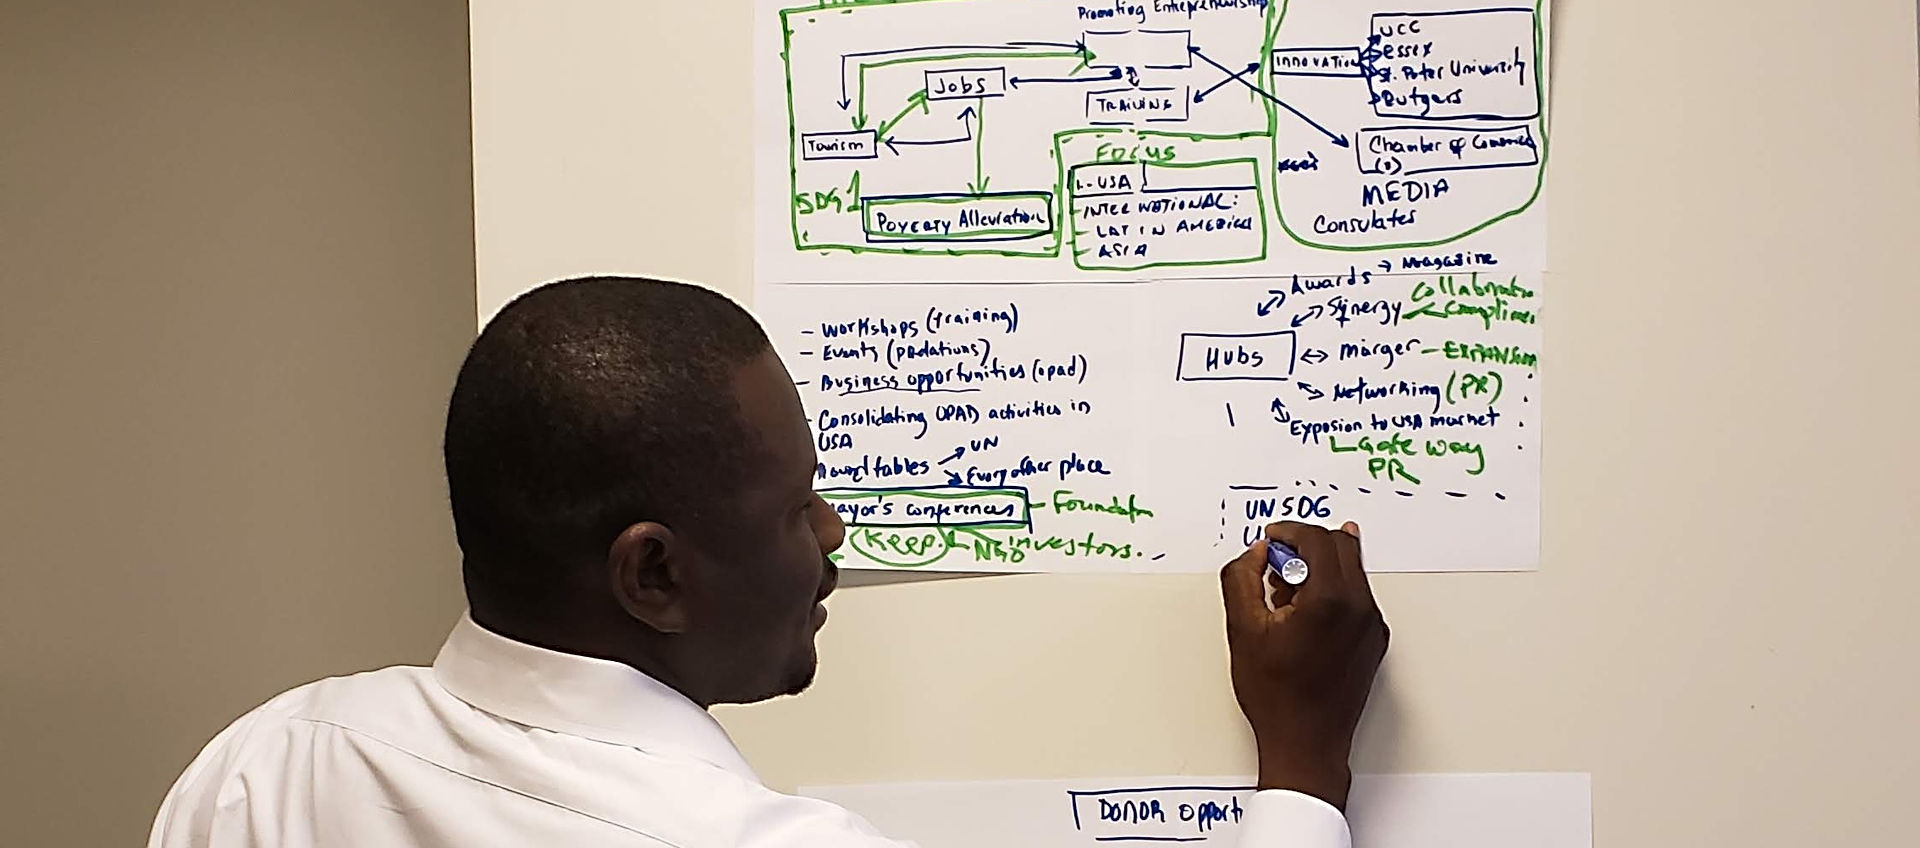 Promoting Entrepreneurship
Jobs
TRAINING
Tourism
SDG 1
Poverty Alleviation
INNOVATION
UCC
Essex
St. Peter University
Rutgers
Chamber of Commerce
(s)
MEDIA
Consulates
FOCUS
USA
INTERNATIONAL:
LATIN AMERICA
ASIA
- Workshops (training)
- Events
- Business opportunities (opad)
- Consolidating OPAD activities in
USA
tables
UN
Every other place
mayor's conferences
Keep
NGO
investors.
Awards → Magazine
Synergy
HUBS
marger - EXPANSION
Networking (PR)
Exposion to USA market
Gate way
PR
UNSDG
U
DONOR opport